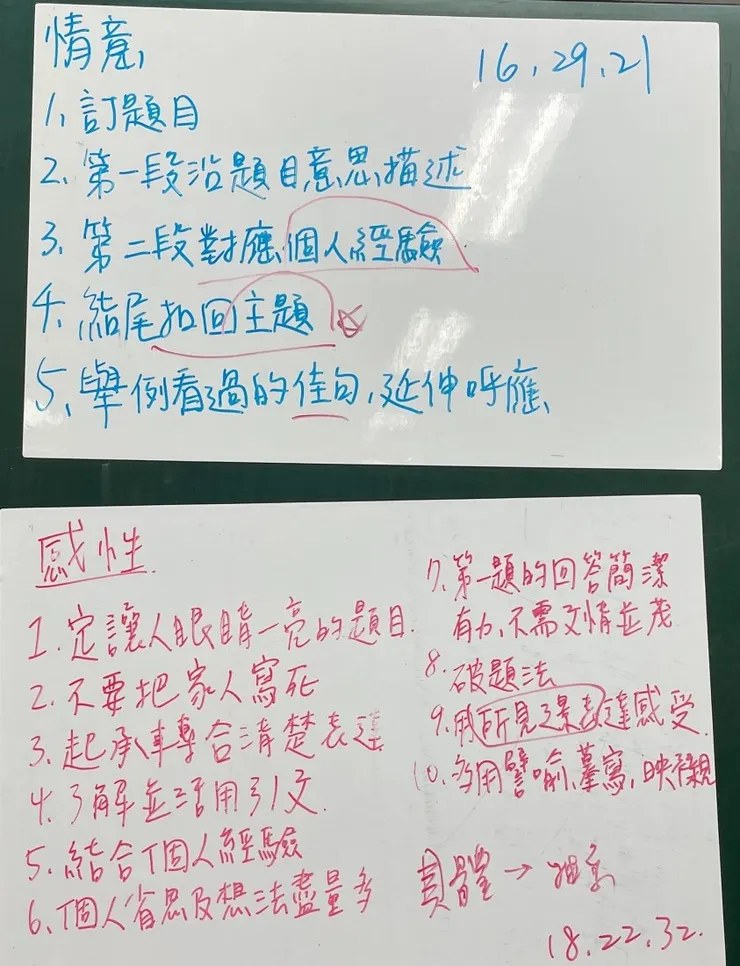 情意
16、29、21
1、訂題目
2、第一段沿題目意思描述
3、第二段對應個人經驗
4、結尾扣回主題
5、舉例看過的佳句,延伸呼應
感性
1.定讓人眼睛一亮的題目.
2.不要把家人寫死
3.起承轉合清楚表達
4.了解並活用引文.
5.結合個人經驗
6.個人省思及想法盡量多
7.第一題的回答簡潔
有力,不需文情並茂
8.破題法
9.用所見之景表達感受.
10.多用譬喻、摹寫,映襯
具體→抽象
18.22.32.